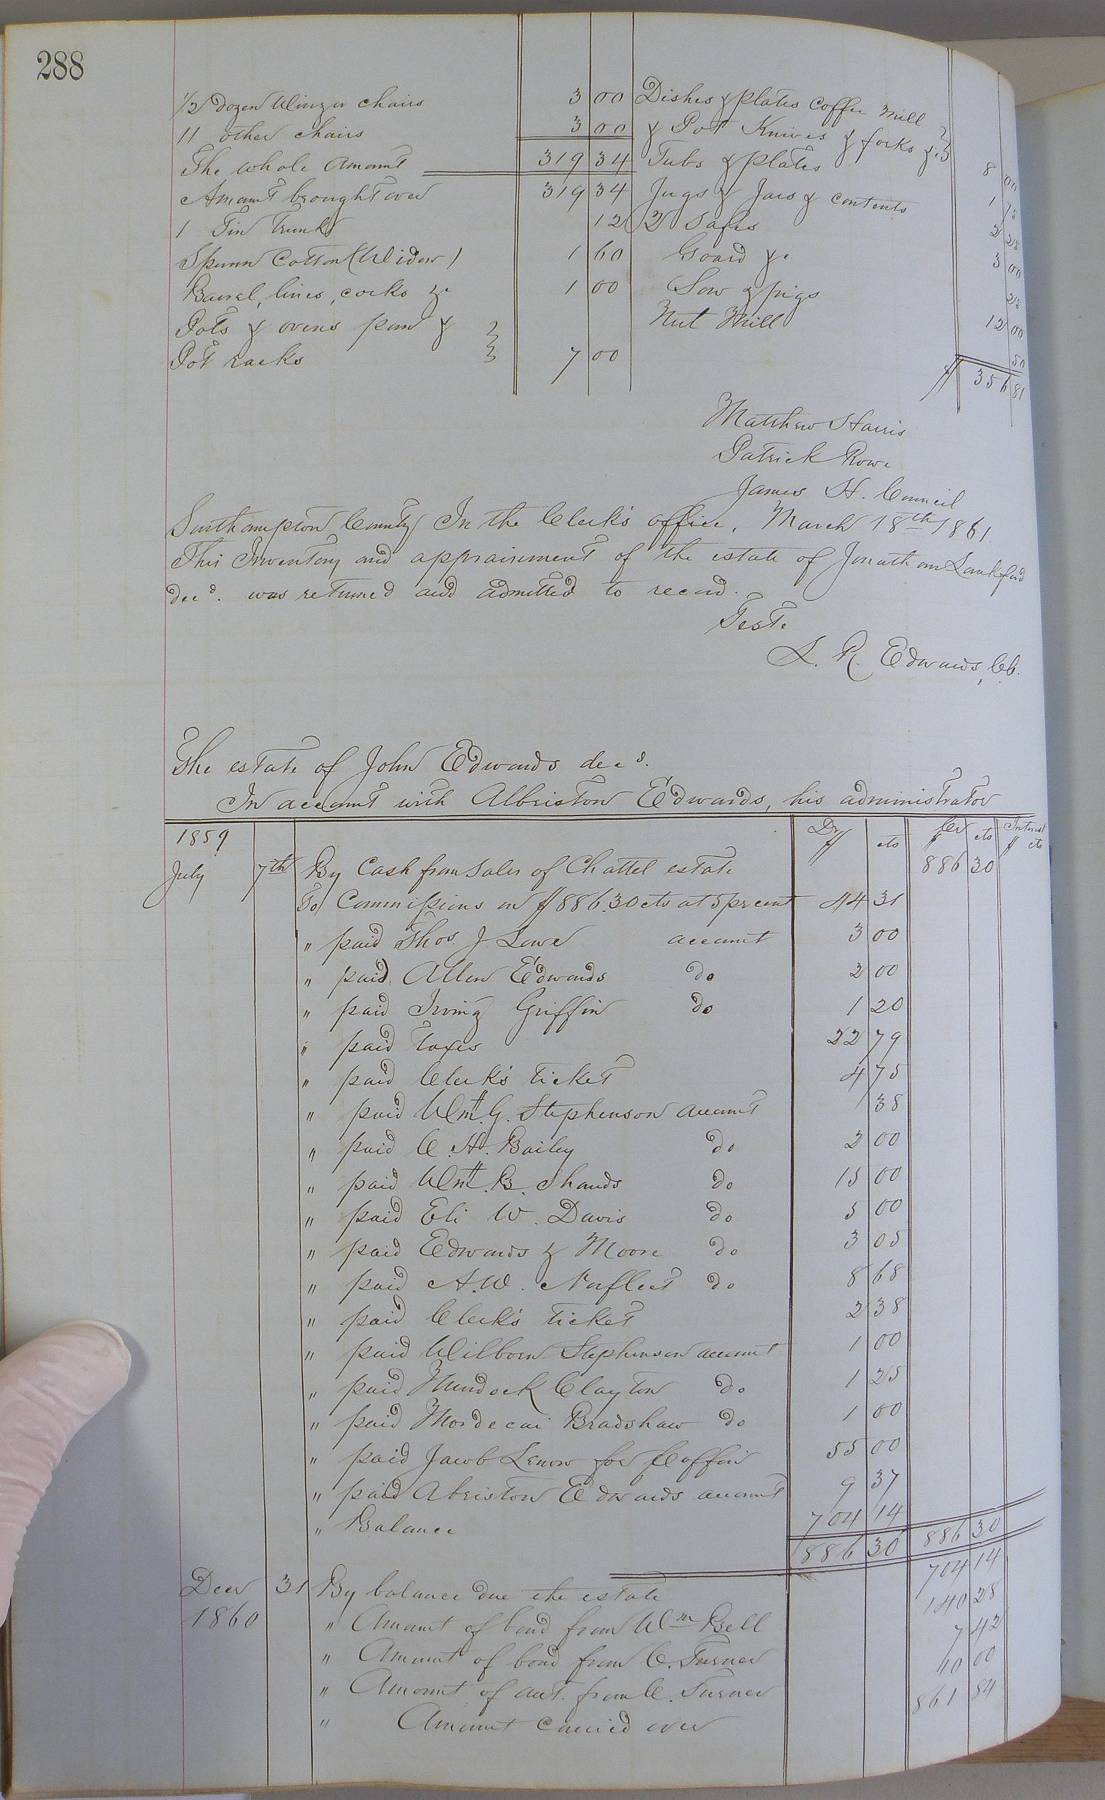 288
1/2 Dozen Winsor chairs 3 00
11 other chairs 3 00
The whole Amount 319 34
Amount brought over 319 34
1 Tin Trunk 12
Spunn Cotton (Widow) 1 60
Barrel, lines, corks &c 1 00
Pots & ovens pan &
Pot racks 7 00
Dishes & plates Coffee Mill
& Pot Knives & forks &c 8 00
Tubs & plates 1
Jugs & Jars & contents 2 25
2 Safes 3 00
Goard &c 25
Sow & pigs 12 00
Nut Mill 50
$ 356 81
Matthew Harris
Patrick Rowe
James H. Council
Southampton County In the Clerk's office, March 18th 1861
This Inventory and appraisement of the estate of Jonathan Lankford
decd. was returned and admitted to record.
Teste
L. R. Edwards, Cb.
The estate of John Edwards decd.
In account with Albriston Edwards, his administrator
1859 Dr $ cts Cr $ cts Interest $ cts
July 7th By Cash from Sales of Chattel estate 886 30
To Commissions on $886.30cts at 5 pr cent 44 31
" paid Thos J Lowe account 3 00
" paid Allen Edwards do 2 00
" paid Irving Griffin do 1 20
" paid Taxes 22 79
" paid Clerk's ticket 4 75
" paid Wm. G. Stephenson account 38
" paid C. H. Bailey do 2 00
" paid Wm. B. Shands do 15 00
" paid Eli W. Davis do 5 00
" paid Edwards & Moore do 3 05
" paid A. W. Norfleet do 8 68
" paid Clerk's ticket 2 38
" paid Wilborn Stephenson account 1 00
" paid Murdock Clayton do 1 25
" paid Mordecai Bradshaw do 1 00
" paid Jacob Lenow for Coffin 55 00
" paid Abriston Edwards account 9 37
" Balance 704 14
886 30 886 30
Decr 31 By balance due the estate 704 14
1860 " Amount of bond from Wm Bell 140 28
" Amount of bond from C. Turner 7 42
" Amount of act. from C. Turner 10 00
" Amount carried over 861 84